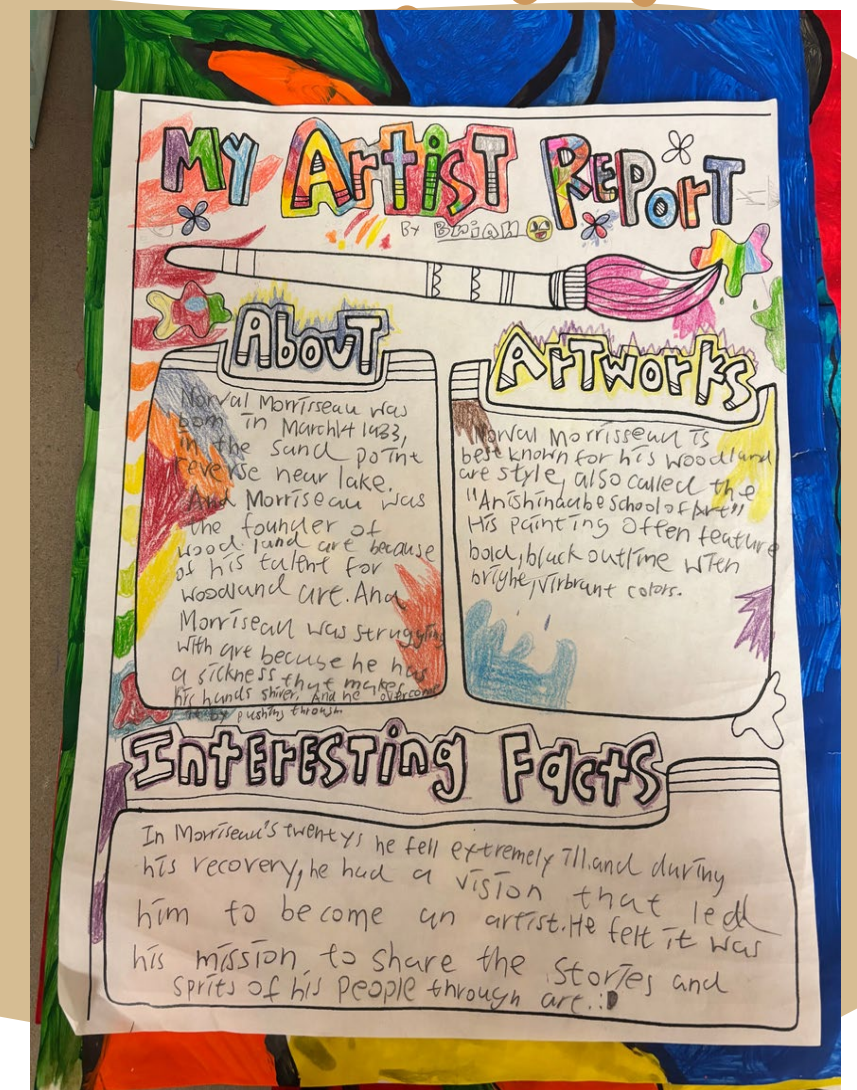 My Artist Report
By Brian
About
Norval Morrisseau was
born in March 14 1933,
in the sand point
reverse near lake.
And Morriseau was
the founder of
wood land art because
of his talent for
woodland art. And
Morriseau was struggling
with art becuse he has
a sickness that makes
his hands shiver. And he overcome
it by pushing through
Artworks
Norval Morrisseau is
best known for his woodland
are style, also called the
"Anishinaabe School of Art"
His painting Often feature
bold, black outline with
bright, virbrant colors.
Interesting Facts
In Morriseau's twentys he fell extremely ill. and during
his recovery, he had a vision that led
him to become an artist. He felt it was
his mission to share the stories and
sprits of his people through art. :D